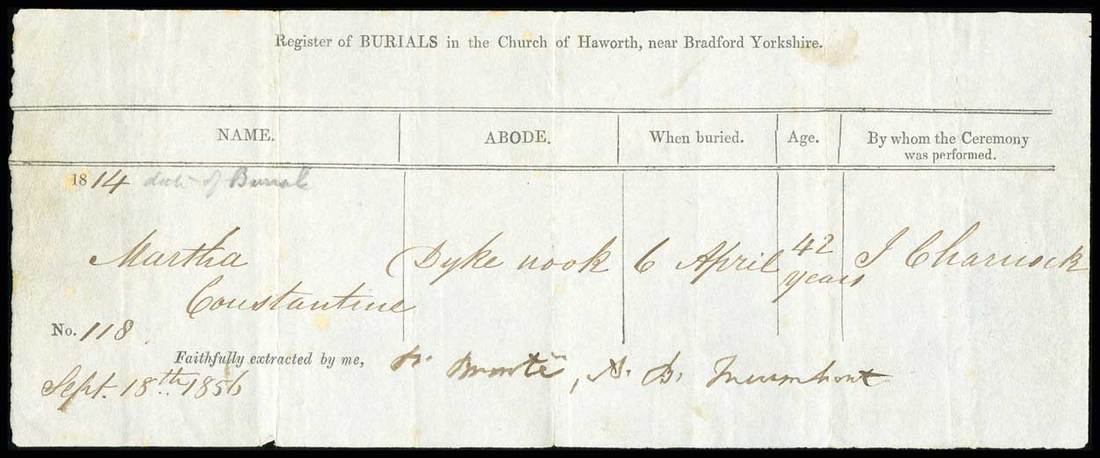 Register of BURIALS in the Church of Haworth, near Bradford Yorkshire.
NAME. ABODE. When buried. Age. By whom the Ceremony was performed.
1814 date of Burial
Martha Constantine Dyke nook 6 April 42 years J Charnock
No. 118.
Faithfully extracted by me, P. Brontë, A. B. Incumbent
Sept. 18th. 1856